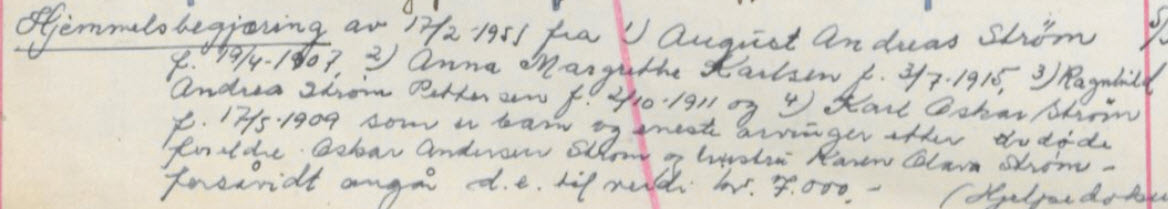 Hjemmelsbegjæring av 17/2-1951 fra 1) August Andreas Strøm
f. 19/4-1907, 2) Anna Margrethe Karlsen f. 3/7-1915, 3) Ragnhild
Andrea Strøm Pettersen f. 2/10-1911 og 4) Karl Oskar Strøm
f. 17/5-1909 som er barn og eneste arvinger etter avdøde
foreldre Oskar Andersen Strøm og hustru Karen Olava Strøm -
forsåvidt angår d.e. til verdi kr. 7.000,- (Hjelpedoku